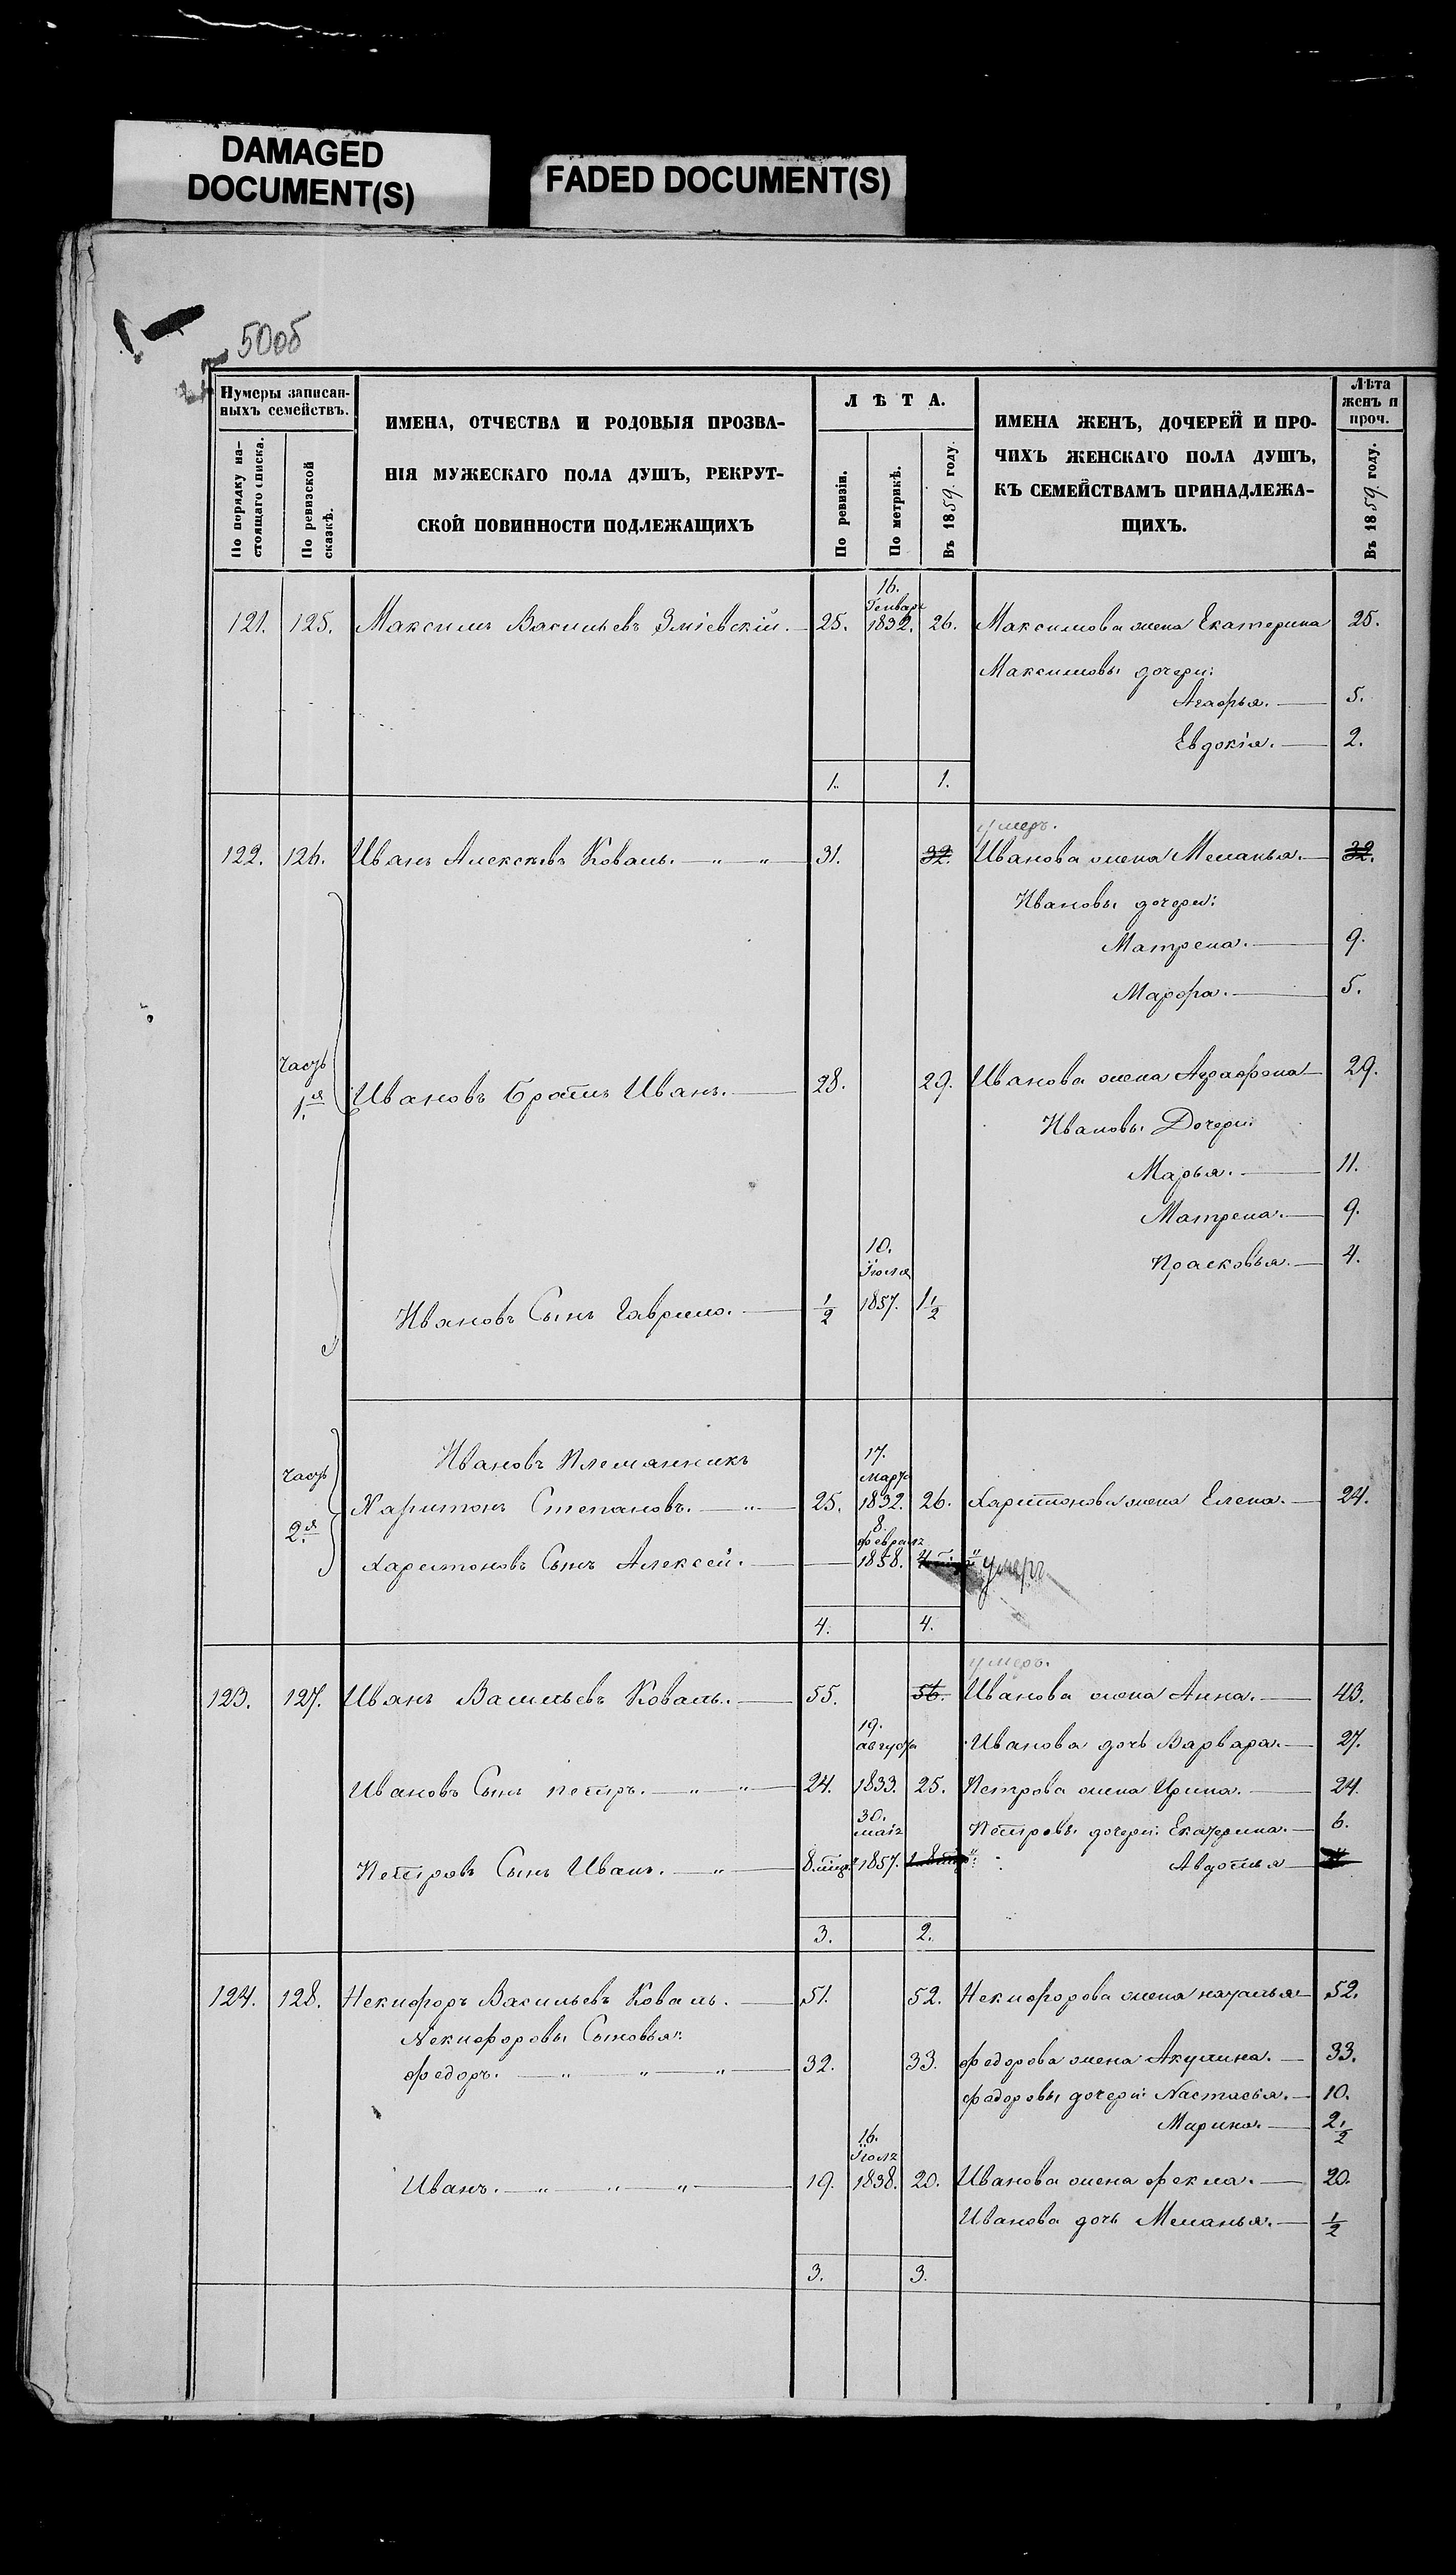 DAMAGED
DOCUMENT(S)
FADED DOCUMENT(S)
50об
Нумеры записан-
ныхъ семействъ.
По порядку на-
стоящаго списка.
По ревизской
сказкѣ.
ИМЕНА, ОТЧЕСТВА И РОДОВЫЯ ПРОЗВА-
НІЯ МУЖЕСКАГО ПОЛА ДУШЪ, РЕКРУТ-
СКОЙ ПОВИННОСТИ ПОДЛЕЖАЩИХЪ
ЛѢТА.
По ревизіи.
По метрикѣ.
Въ 1859 году.
ИМЕНА ЖЕНЪ, ДОЧЕРЕЙ И ПРО-
ЧИХЪ ЖЕНСКАГО ПОЛА ДУШЪ,
КЪ СЕМЕЙСТВАМЪ ПРИНАДЛЕЖА-
ЩИХЪ.
Лѣта
женъ и
проч.
Въ 1859 году.
16.
Генваря
121. 125. Максимъ Васильевъ Зміевскій. 25. 1832. 26. Максимова жена Екатерина 25.
Максимовы дочери:
Агафья. 5.
Евдокія. 2.
1. 1.
умеръ.
122. 126. Иванъ Алексѣевъ Коваль. 31. 32. Иванова жена Меланья. 32.
Ивановы дочери:
Матрена. 9.
Марфа. 5.
Часть
1.я Ивановъ Братъ Иванъ. 28. 29. Иванова жена Аграфена 29.
Ивановы Дочери:
Марья. 11.
Матрена. 9.
Прасковья. 4.
10.
Іюля
Ивановъ Сынъ Гаврило. 1/2 1857. 1 1/2
Ивановъ Племянникъ
17.
Марта
часть
2.я Харитонъ Степановъ. 25. 1832. 26. Харитонова жена Елена. 24.
8.
февраля
Харитоновъ Сынъ Алексей. 1858. умеръ
4. 4.
умеръ.
123. 127. Иванъ Васильевъ Коваль. 55. 56. Иванова жена Анна. 43.
19.
августа
Иванова дочь Варвара. 27.
Ивановъ Сынъ петръ. 24. 1833. 25. Петрова жена Ирина. 24.
30.
маія
Петровы дочери: Екатерина. 6.
Петровъ Сынъ Иванъ. 8. 1857. Авдотья
3. 2.
124. 128. Некифоръ Васильевъ Коваль. 51. 52. Некифорова жена наталья 52.
Некифоровы Сыновья:
федоръ. 32. 33. федорова жена Акулина. 33.
федоровы дочери: Настасья. 10.
Марина. 2 1/2
16.
Іюля
Иванъ. 19. 1838. 20. Иванова жена фекла. 20.
Иванова дочь Меланья. 1/2
3. 3.